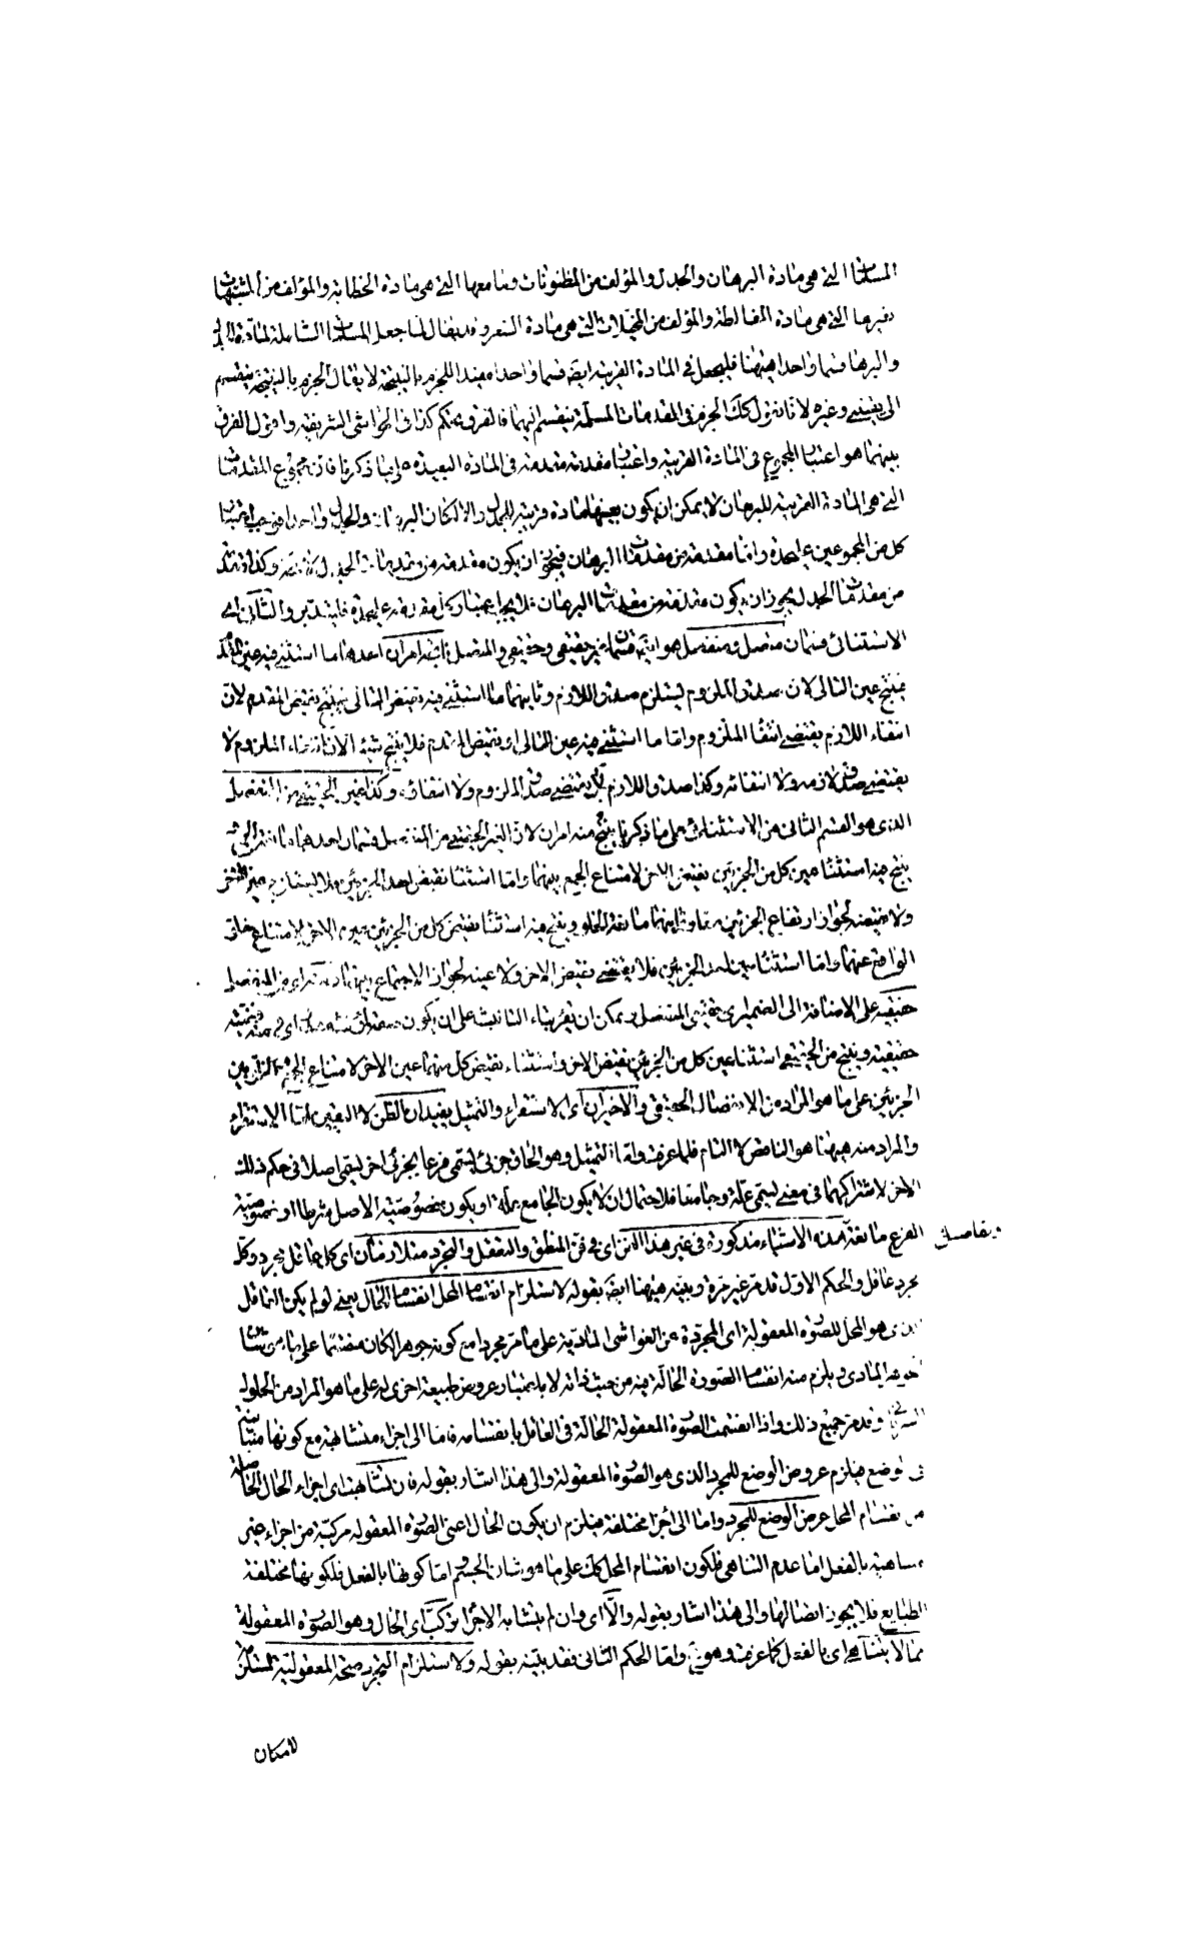 المسلمات التي هي مادة البرهان والجدل والمؤلف من المظنونات وما معها التي هي مادة الخطابة والمؤلف من المشبهات
وغيرها التي هي مادة المغالطة والمؤلف من المخيلات التي هي مادة الشعر وقد يقال لما جعل المسلمات الشاملة لمادة الجدل
والبرهان قسما واحدا ههنا فليجعل في المادة القريبة ايضا قسما واحدا مفيدا للجزم بالنتيجة لا يقال الجزم بالنتيجة ينقسم
الى يقيني وغيره لانا نقول كك الجزم في المقدمات المسلمة ينقسم اليهما فالفرق تحكم كذا في الحواشي الشريفية واقول الفرق
بينهما هو اعتبار المجموع في المادة القريبة واعتبار مقدمة مقدمة في المادة البعيدة على ما ذكرنا فان مجموع المقدمات
التي هي المادة القريبة للبرهان لا يمكن ان يكون بعينها مادة قريبة للجدل والا لكان البرهان والجدل واحدا فوجب اعتبار
كل من المجموعين علىحدة واما مقدمة من مقدمات البرهان فيجوز ان يكون مقدمة من مقدمات الجدل وكذا مقدمة
من مقدمات الجدل يجوز ان يكون مقدمة من مقدمات البرهان فلا يجب اعتبار كل مقدمة علىحدة فليتدبر والثاني اي
الاستثنائي قسمان متصل ومنفصل هو ايضا قسمان غير حقيقي وحقيقي والمتصل ناتجه امران احدهما ما استثني فيه عين المقدم
ينتج عين التالي لان صدق الملزوم يستلزم صدق اللازم وثانيهما ما استثني فيه نقيض التالي ينتج نقيض المقدم لان
انتفاء اللازم يقتضي انتفاء الملزوم واما ما استثني فيه عين التالي او نقيض المقدم فلا ينتج شيئا لان انتفاء الملزوم لا
يقتضي صدق لازمه ولا انتفائه وكذا صدق اللازم لا يقتضي صدق الملزوم ولا انتفاؤه وكذا غير الحقيقي من المنفصل
الذي هو القسم الثاني من الاستثنائي على ما ذكرنا ينتج منه امران لان الغير الحقيقي من المنفصل قسمان احدهما مانعة الجمع
ينتج منه استثناء عين كل من الجزئين نقيض الاخر لامتناع الجمع بينهما واما استثناء نقيض احد الجزئين فلا يستلزم عين الاخر
ولا نقيضه لجواز ارتفاع الجزئين معا وثانيهما مانعة الخلو وينتج منه استثناء نقيض كل من الجزئين عين الاخر لامتناع خلو
الواقع عنهما واما استثناء عين احد الجزئين فلا يقتضي نقيض الاخر ولا عينه لجواز الاجتماع بينهما
حقيقيه على الاضافة الى الضمير اي حقيقي المنفصل ويمكن ان يقرء بتاء التانيث على ان يكون صفة
حقيقية وينتج من الحقيقي استثناء عين كل من الجزئين نقيض الاخر واستثناء نقيض كل منهما عين الاخر لامتناع الجمع والخلو بين
الجزئين على ما هو المراد من الانفصال الحقيقي والاخيران اي الاستقراء والتمثيل يفيدان الظن لا اليقين اما الاستقراء
والمراد منه ههنا هو الناقص لا التام فلما عرفت واما التمثيل وهو الحاق جزئي يسمى فرعا بجزئي اخر يسمى اصلا في حكم ذلك
الاخر لاشتراكهما في معنى يسمى علة وجامعا فلاحتمال ان لا يكون الجامع علة او يكون خصوصية الاصل شرطا او خصوصية
الفرع مانعة وتفاصيل هذه الاشياء مذكورة في غير هذا الفن اي في فن المنطق والتعقل والتجرد متلازمان اي كل عاقل مجرد وكل
مجرد عاقل والحكم الاول قد مر غير مرة ويبينه ههنا ايضا بقوله لاستلزام انقسام المحل انقسام الحال يعني لو لم يكن العاقل
الذي هو المحل للصورة المعقولة اي المجردة عن الغواشي المادية على ما مر مجردا مع كونه جوهرا لكان منقسما على ما مر
المادي ويلزم منه انقسام الصورة الحالة فيه من حيث ذاته لا باعتبار عروض طبيعة اخرى له على ما هو المراد من الحلول
وقد مر جميع ذلك واذا انقسمت الصورة المعقولة الحالة في العاقل بانقسامه فاما الى اجزاء متشابهة مع كونها متباينة
في الوضع فيلزم عروض الوضع للمجرد الذي هو الصورة المعقولة والى هذا اشار بقوله فان تشابهت اي اجزاء الحال الحاصلة
من انقسام المحل عرض الوضع للمجرد واما الى اجزاء مختلفة فيلزم ان يكون الحال اعني الصورة المعقولة مركبة من اجزاء غير
متناهية بالفعل اما عدم التناهي فلكون انقسام المحل كك على ما هو شان الجسم واما كونها بالفعل فلكونها مختلفة
الطبايع فلا يجوز اتصالها والى هذا اشار بقوله والا اي وان لم يتشابه الاجزاء تركب اي الحال وهو الصورة المعقولة
مما لا يتناهى اي بالفعل كما عرفت وهو مح واما الحكم الثاني فقد بينه بقوله ولاستلزام التجرد صحة المعقولية المستلزمة
لامكان